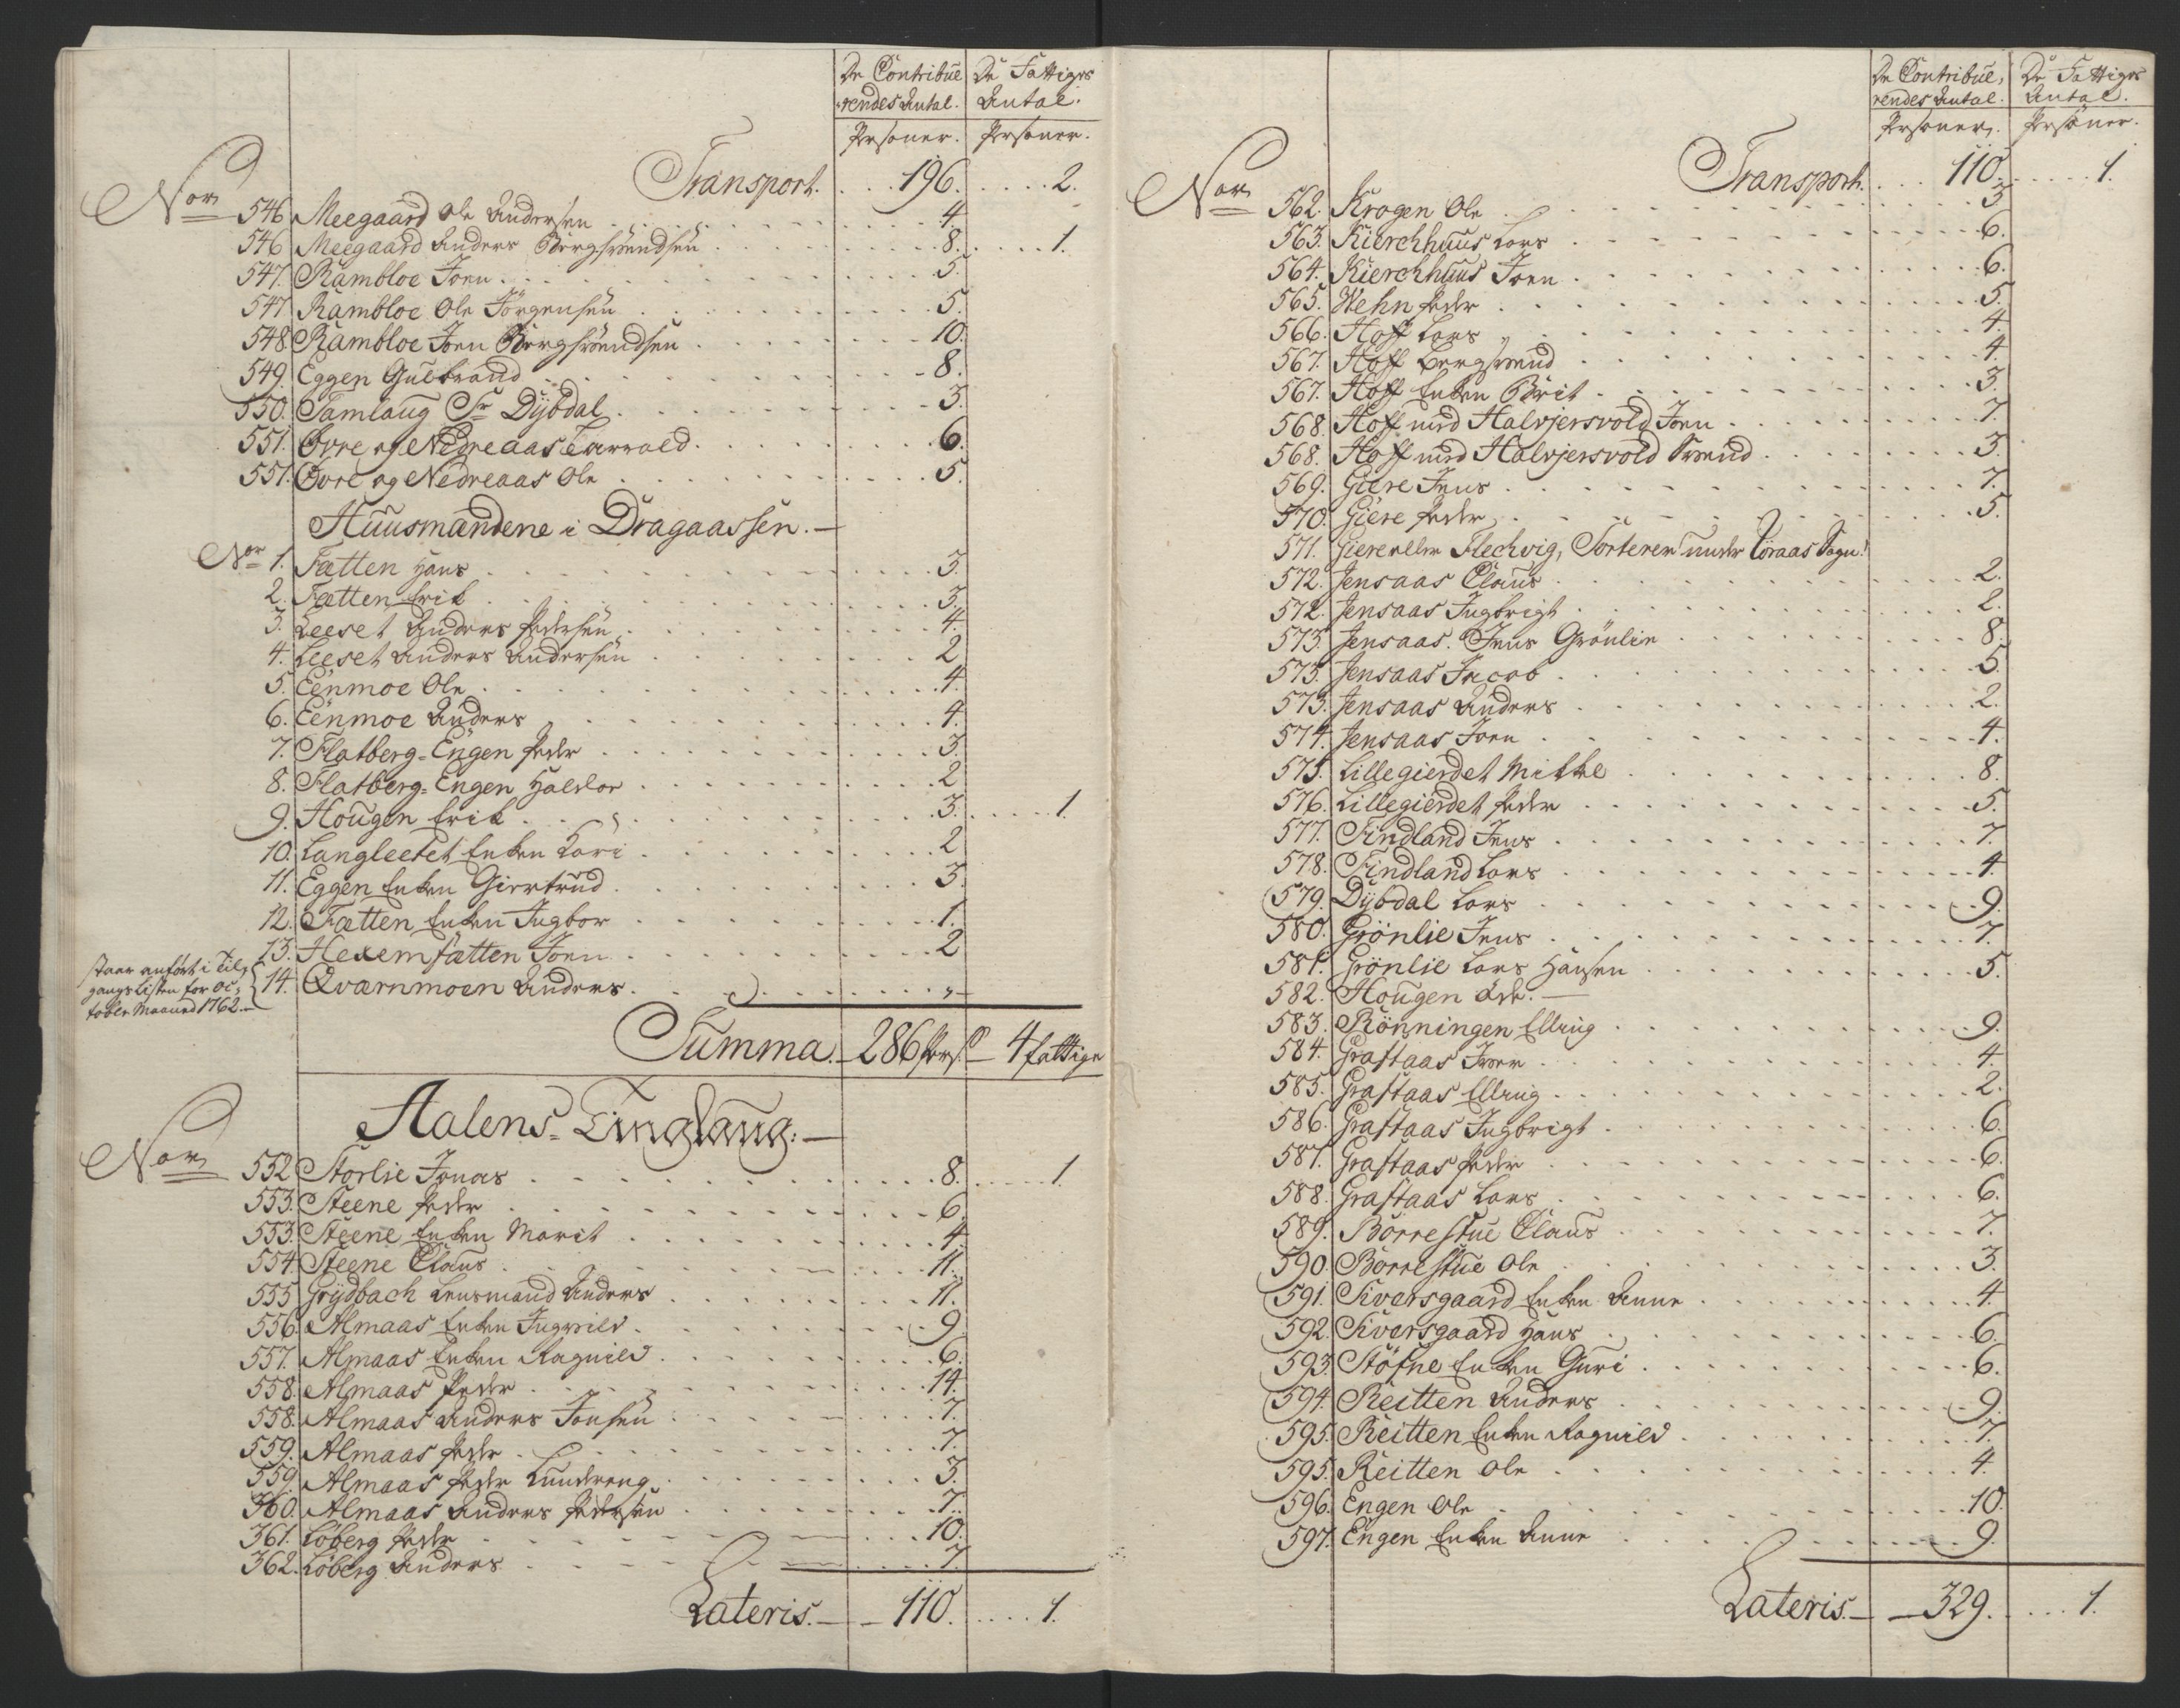 De Contribue De Fattiges
rendes Antal. Antal.
Personer. Personer.
Nor Transport. 196. 2.
546 Meegaard Ole Andersen 4.
546 Meegaard Anders Bergsvendsen 8. 1.
547. Rambloe Joen 5.
547 Rambloe Ole Jörgensen 5.
548 Rambloe Joen Bergsvendsen 10.
549. Eggen Gulbrand 8.
550. Tamlaug Sr Dybdal 3.
551. Øvre og Nedreaas Tarrald 6.
551. Øvre og Nedreaas Ole 5.
Huusmændene i Dragaassen.
Nor 1. Fætten Hans 3.
2. Fætten Erik 3.
3. Leeset Anders Pedersen 4.
4. Leeset Anders Andersen 2
5. Eenmoe Ole 4.
6. Eenmoe Anders 4.
7. Flatberg-Engen Peder 3.
8. Flatberg-Engen Haldor 2
9. Hougen Erik 3. 1.
10. Langleetet Enken Kari 2
11. Eggen Enken Giertrud 3.
12. Fætten Enken Ingbor 1.
13. Hexemfætten Joen 2
staar anført i Til,
gangs Listen for Oc,
tober Maaned 1762.
14. Qværnmoen Anders „
Summa 286 Pers. 4 fattige
Aalens Tinglaug.
Nor 552 Storlie Jonas 8. 1.
553. Steene Peder 6
553. Steene Enken Marit 4.
554. Steene Claus 11.
555 Grydbach Lensmand Anders 11.
556. Almaas Enken Ingveild 9
557. Almaas Enken Ragnild 6.
558. Almaas Peder 14.
558. Almaas Anders Jonsen 7.
559. Almaas Peder 7.
559. Almaas Peder Lundereng 3.
360. Almaas Anders Pedersen 7.
361. Løberg Peder 10.
362. Løberg Anders 7.
Lateris. 110. 1.
De Contribue, De Fattiges
rendes Antal. Antal.
Personer. Personer.
Nor Transport. 110. 1.
562. Krogen Ole 3
563. Kierchhuus Lars 6.
564. Kierchhuus Joen 6.
565. Wehn Peder 5.
566. Hoff Lars 4.
567. Hoff Bergsvend 4.
567. Hoff Enken Brit 3.
568. Hoff med Halvjersvold Joen 7.
568. Hoff med Halvjersvold Svend 3.
569. Giere Jens 7.
570. Giere Peder 5.
571. Giere eller Flechvig, Sorterer under Röraas Sogn.
572. Jensaas Claus 2.
572. Jensaas Ingbrigt 2.
573. Jensaas. Jens Grönlie 8.
573. Jensaas Jacob 5.
573. Jensaas Anders 2.
574. Jensaas Joen 4.
575. Lillegierdet Mikkel 8.
576. Lillegierdet Peder 5.
577. Findland Jens 7.
578. Findland Lars 4
579. Dybdal Lars 9.
580. Grönlie Jens 7.
581. Grönlie Lars Hansen 5.
582. Hougen øde.
583. Rönningen Elling 9.
584. Graftaas Iver 4.
585. Graftaas Elling 2.
586. Graftaas Ingbrigt 6.
587. Graftaas Peder 6.
588. Graftaas Lars 6.
589. Borrestue Claus 7.
590. Borrestue Ole 3.
591. Siversgaard Enken Anne 4.
592. Siversgaard Hans 6.
593. Stöfne Enken Guri 6.
594. Reitten Anders 9.
595. Reitten Enken Ragnild 7.
595. Reitten Ole 4.
596. Engen Ole 10.
597. Engen Enken Anne 9.
Lateris. 329. 1.